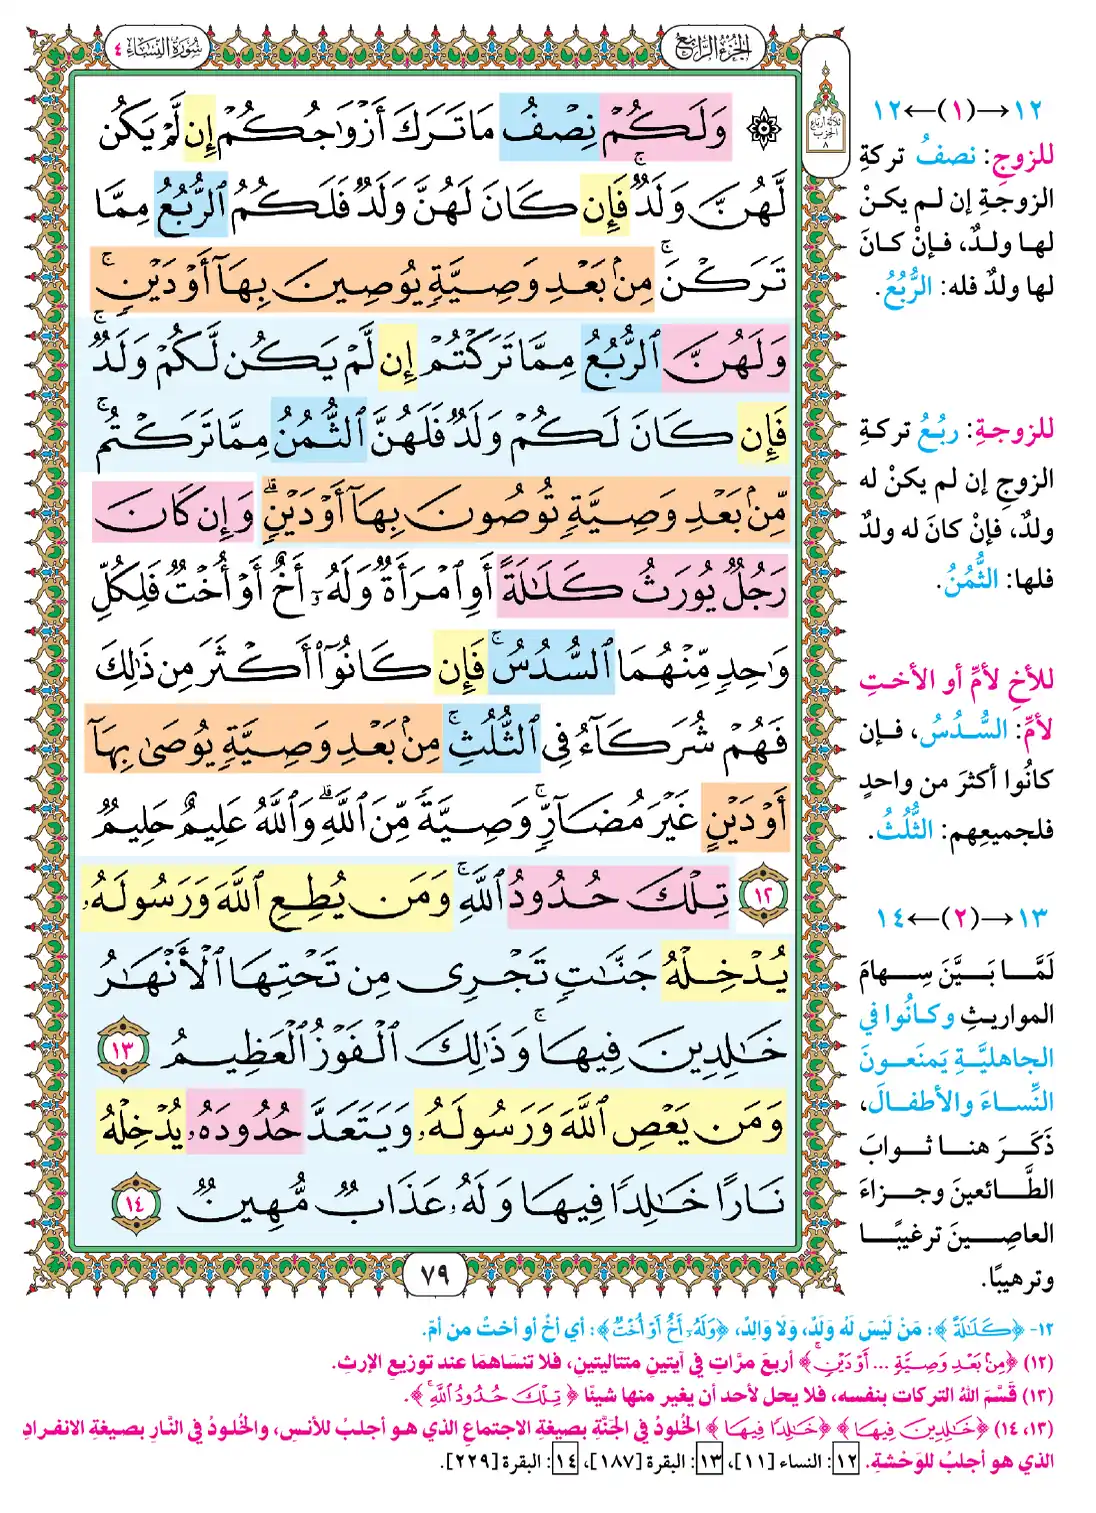 سُورَةُ النِّسَاءِ ٤
الجُزءُ الرَّابِعُ
ثلاثة أرباع
الحزب
٨
۞ وَلَكُمْ نِصْفُ مَا تَرَكَ أَزْوَٰجُكُمْ إِن لَّمْ يَكُن
لَّهُنَّ وَلَدٌ ۚ فَإِن كَانَ لَهُنَّ وَلَدٌ فَلَكُمُ ٱلرُّبُعُ مِمَّا
تَرَكْنَ ۚ مِنۢ بَعْدِ وَصِيَّةٍ يُوصِينَ بِهَآ أَوْ دَيْنٍ ۚ
وَلَهُنَّ ٱلرُّبُعُ مِمَّا تَرَكْتُمْ إِن لَّمْ يَكُن لَّكُمْ وَلَدٌ ۚ
فَإِن كَانَ لَكُمْ وَلَدٌ فَلَهُنَّ ٱلثُّمُنُ مِمَّا تَرَكْتُم ۚ
مِّنۢ بَعْدِ وَصِيَّةٍ تُوصُونَ بِهَآ أَوْ دَيْنٍ ۗ وَإِن كَانَ
رَجُلٌ يُورَثُ كَلَٰلَةً أَوِ ٱمْرَأَةٌ وَلَهُۥٓ أَخٌ أَوْ أُخْتٌ فَلِكُلِّ
وَٰحِدٍ مِّنْهُمَا ٱلسُّدُسُ ۚ فَإِن كَانُوٓا۟ أَكْثَرَ مِن ذَٰلِكَ
فَهُمْ شُرَكَآءُ فِى ٱلثُّلُثِ ۚ مِنۢ بَعْدِ وَصِيَّةٍ يُوصَىٰ بِهَآ
أَوْ دَيْنٍ غَيْرَ مُضَآرٍّ ۚ وَصِيَّةً مِّنَ ٱللَّهِ ۗ وَٱللَّهُ عَلِيمٌ حَلِيمٌ
١٢ تِلْكَ حُدُودُ ٱللَّهِ ۚ وَمَن يُطِعِ ٱللَّهَ وَرَسُولَهُۥ
يُدْخِلْهُ جَنَّٰتٍ تَجْرِى مِن تَحْتِهَا ٱلْأَنْهَٰرُ
خَٰلِدِينَ فِيهَا ۚ وَذَٰلِكَ ٱلْفَوْزُ ٱلْعَظِيمُ ١٣
وَمَن يَعْصِ ٱللَّهَ وَرَسُولَهُۥ وَيَتَعَدَّ حُدُودَهُۥ يُدْخِلْهُ
نَارًا خَٰلِدًا فِيهَا وَلَهُۥ عَذَابٌ مُّهِينٌ ١٤
٧٩
١٢→(١)←١٢
للزوجِ: نصفُ تركةِ
الزوجةِ إن لم يكنْ
لها ولدٌ، فإنْ كانَ
لها ولدٌ فله: الرُّبُعُ.
للزوجةِ: ربُعُ تركةِ
الزوجِ إن لم يكنْ له
ولدٌ، فإنْ كانَ له ولدٌ
فلها: الثُّمُنُ.
للأخِ لأمٍّ أو الأختِ
لأمٍّ: السُّدُسُ، فإن
كانُوا أكثرَ من واحدٍ
فلجميعِهم: الثُّلُثُ.
١٣→(٢)←١٤
لَمَّا بَيَّنَ سِهامَ
المواريثِ وكانُوا في
الجاهليَّةِ يَمنَعونَ
النِّساءَ والأطفالَ،
ذَكَرَ هنا ثوابَ
الطَّائعينَ وجزاءَ
العاصِينَ ترغيبًا
وترهيبًا.
١٢- ﴿كَلَٰلَةً﴾: مَنْ لَيْسَ لَهُ وَلَدٌ، وَلَا وَالِدٌ، ﴿وَلَهُۥٓ أَخٌ أَوْ أُخْتٌ﴾: أي أخٌ أو أختٌ من أمٍّ.
(١٢) ﴿مِنۢ بَعْدِ وَصِيَّةٍ ... أَوْ دَيْنٍ ۚ﴾ أربعَ مرَّاتٍ في آيتينِ متتاليتينِ، فلا تنساهمَا عند توزيعِ الإرثِ.
(١٣) قَسَّمَ اللهُ التركاتِ بنفسِه، فلا يحلُ لأحد أن يغير منها شيئًا ﴿تِلْكَ حُدُودُ ٱللَّهِ ۚ﴾.
(١٣، ١٤) ﴿خَٰلِدِينَ فِيهَا﴾ ﴿خَٰلِدًا فِيهَا﴾ الخُلودُ في الجَنَّةِ بصيغةِ الاجتماعِ الذي هو أجلبُ للأنسِ، والخُلودُ في النَّارِ بصيغةِ الانفرادِ
الذي هو أجلبُ للوَحْشةِ. ١٢: النساء [١١]، ١٣: البقرة [١٨٧]، ١٤: البقرة [٢٢٩].